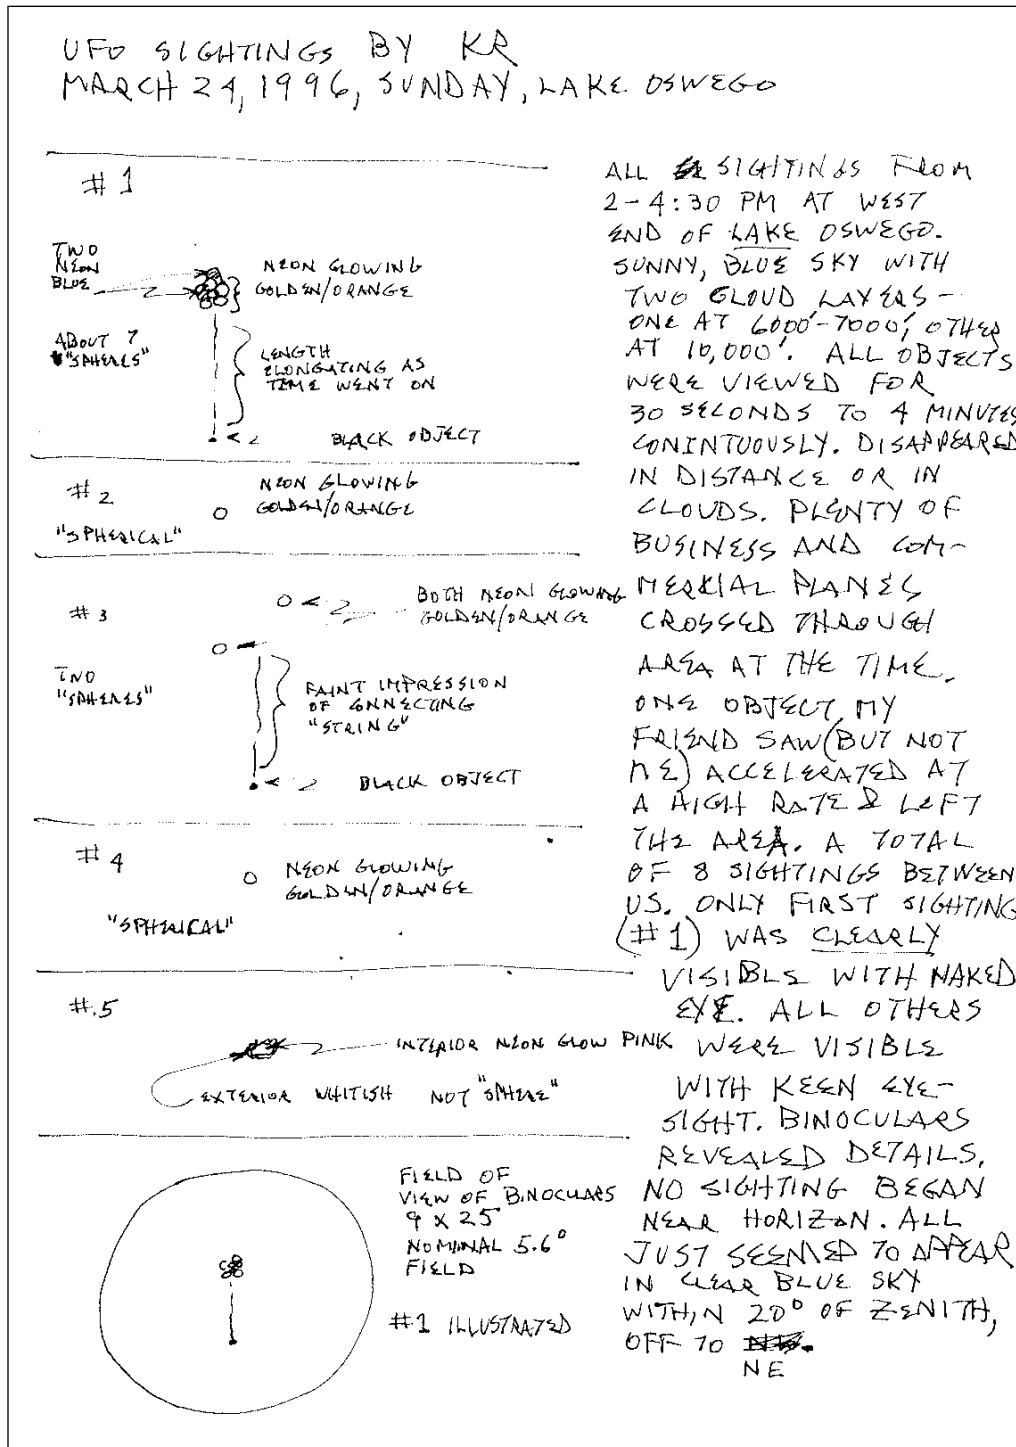 UFO SIGHTINGS BY KR
MARCH 24, 1996, SUNDAY, LAKE OSWEGO
#1
TWO
NEON
BLUE
NEON GLOWING
GOLDEN/ORANGE
ABOUT 7
"SPHERES"
LENGTH
ELONGATING AS
TIME WENT ON
BLACK OBJECT
#2
"SPHERICAL"
NEON GLOWING
GOLDEN/ORANGE
#3
BOTH NEON GLOWING
GOLDEN/ORANGE
TWO
"SPHERES"
FAINT IMPRESSION
OF CONNECTING
"STRING"
BLACK OBJECT
#4
NEON GLOWING
GOLDEN/ORANGE
"SPHERICAL"
#5
INTERIOR NEON GLOW PINK
EXTERIOR WHITISH NOT "SPHERE"
FIELD OF
VIEW OF BINOCULARS
9 X 25
NOMINAL 5.6°
FIELD
#1 ILLUSTRATED
ALL SIGHTINGS FROM
2-4:30 PM AT WEST
END OF LAKE OSWEGO.
SUNNY, BLUE SKY WITH
TWO CLOUD LAYERS -
ONE AT 6000'-7000', OTHER
AT 10,000'. ALL OBJECTS
WERE VIEWED FOR
30 SECONDS TO 4 MINUTES
CONINTUOUSLY. DISAPPEARED
IN DISTANCE OR IN
CLOUDS. PLENTY OF
BUSINESS AND COM-
MERCIAL PLANES
CROSSED THROUGH
AREA AT THE TIME.
ONE OBJECT MY
FRIEND SAW (BUT NOT
ME) ACCELERATED AT
A HIGH RATE & LEFT
THE AREA. A TOTAL
OF 8 SIGHTINGS BETWEEN
US. ONLY FIRST SIGHTING
(#1) WAS CLEARLY
VISIBLE WITH NAKED
EYE. ALL OTHERS
WERE VISIBLE
WITH KEEN EYE-
SIGHT. BINOCULARS
REVEALED DETAILS.
NO SIGHTING BEGAN
NEAR HORIZON. ALL
JUST SEEMED TO APPEAR
IN CLEAR BLUE SKY
WITHIN 20° OF ZENITH,
OFF TO
NE